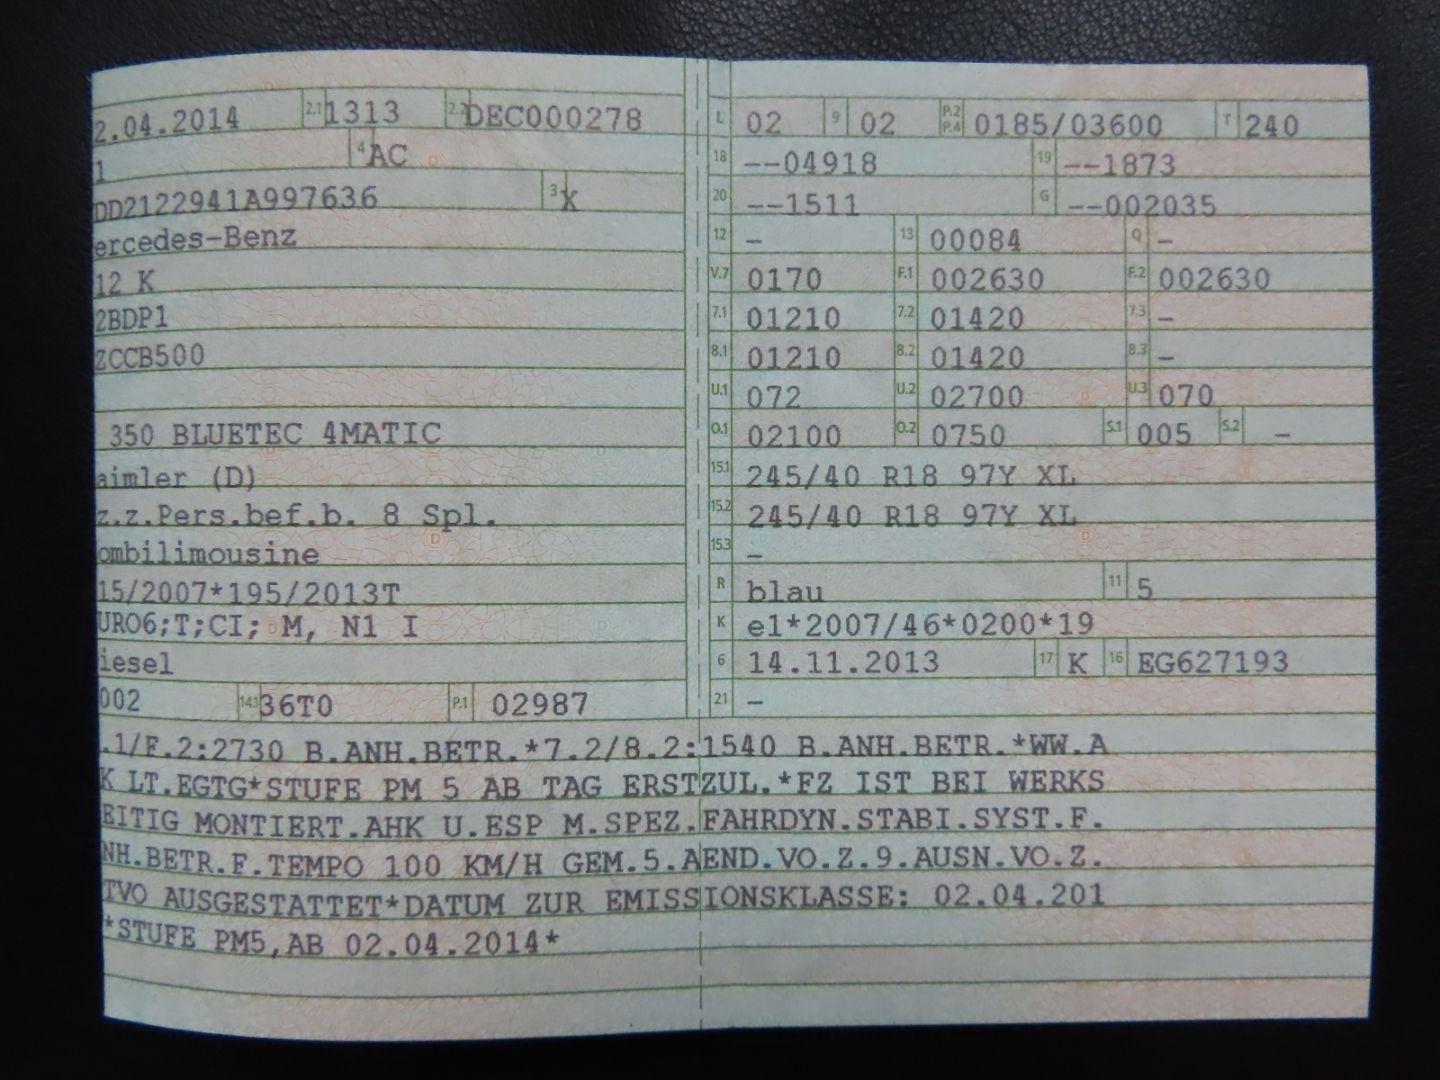 2.04.2014 2.1 1313 2.2 DEC000278
1 4 AC
DD2122941A997636 3 X
ercedes-Benz
12 K
2BDP1
ZCCB500
350 BLUETEC 4MATIC
aimler (D)
z.z.Pers.bef.b. 8 Spl.
ombilimousine
15/2007*195/2013T
URO6;T;CI; M, N1 I
iesel
002 14.1 36T0 P.1 02987
L 02 9 02 P.2 P.4 0185/03600 T 240
18 --04918 19 --1873
20 --1511 G --002035
12 - 13 00084 Q -
V.7 0170 F.1 002630 F.2 002630
7.1 01210 7.2 01420 7.3 -
8.1 01210 8.2 01420 8.3 -
U.1 072 U.2 02700 U.3 070
O.1 02100 O.2 0750 S.1 005 S.2 -
15.1 245/40 R18 97Y XL
15.2 245/40 R18 97Y XL
15.3 -
R blau 11 5
K e1*2007/46*0200*19
6 14.11.2013 17 K 16 EG627193
21 -
.1/F.2:2730 B.ANH.BETR.*7.2/8.2:1540 B.ANH.BETR.*WW.A
K LT.EGTG*STUFE PM 5 AB TAG ERSTZUL.*FZ IST BEI WERKS
EITIG MONTIERT.AHK U.ESP M.SPEZ.FAHRDYN.STABI.SYST.F.
NH.BETR.F.TEMPO 100 KM/H GEM.5.AEND.VO.Z.9.AUSN.VO.Z.
TVO AUSGESTATTET*DATUM ZUR EMISSIONSKLASSE: 02.04.201
*STUFE PM5,AB 02.04.2014*